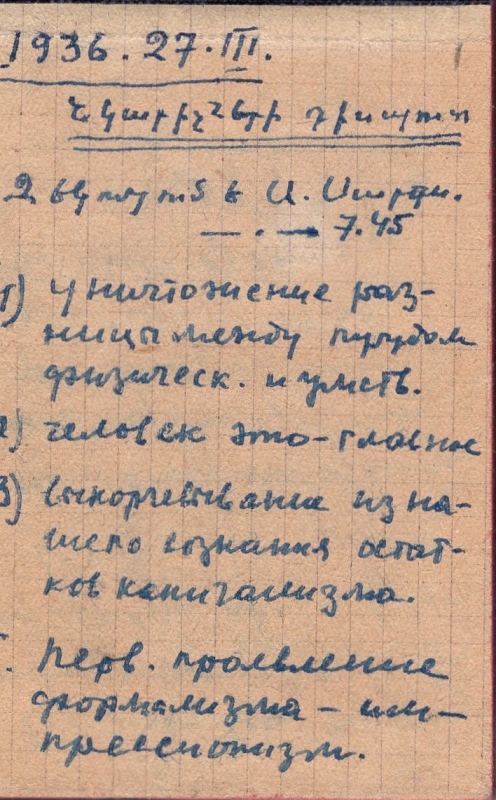 1936.27.III.
Նկարիչների դիսպուտ
Զեկուցում է
— . — 7.45
1) Уничтожение раз-
ницы между трудом
физическ. и умств.
2) Человек это – главное
3) выкорчевывание из на-
шего сознания остат-
ков капитализма.
Перв. проявление
формализма – им-
прессионизм.